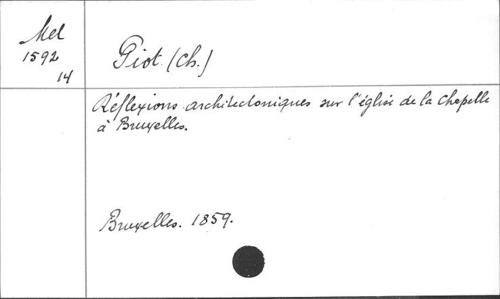 Mel
1592
14
Piot. (Ch.)
Réflexions architectoniques sur l'église de la Chapelle
à Bruxelles.
Bruxelles. 1859.